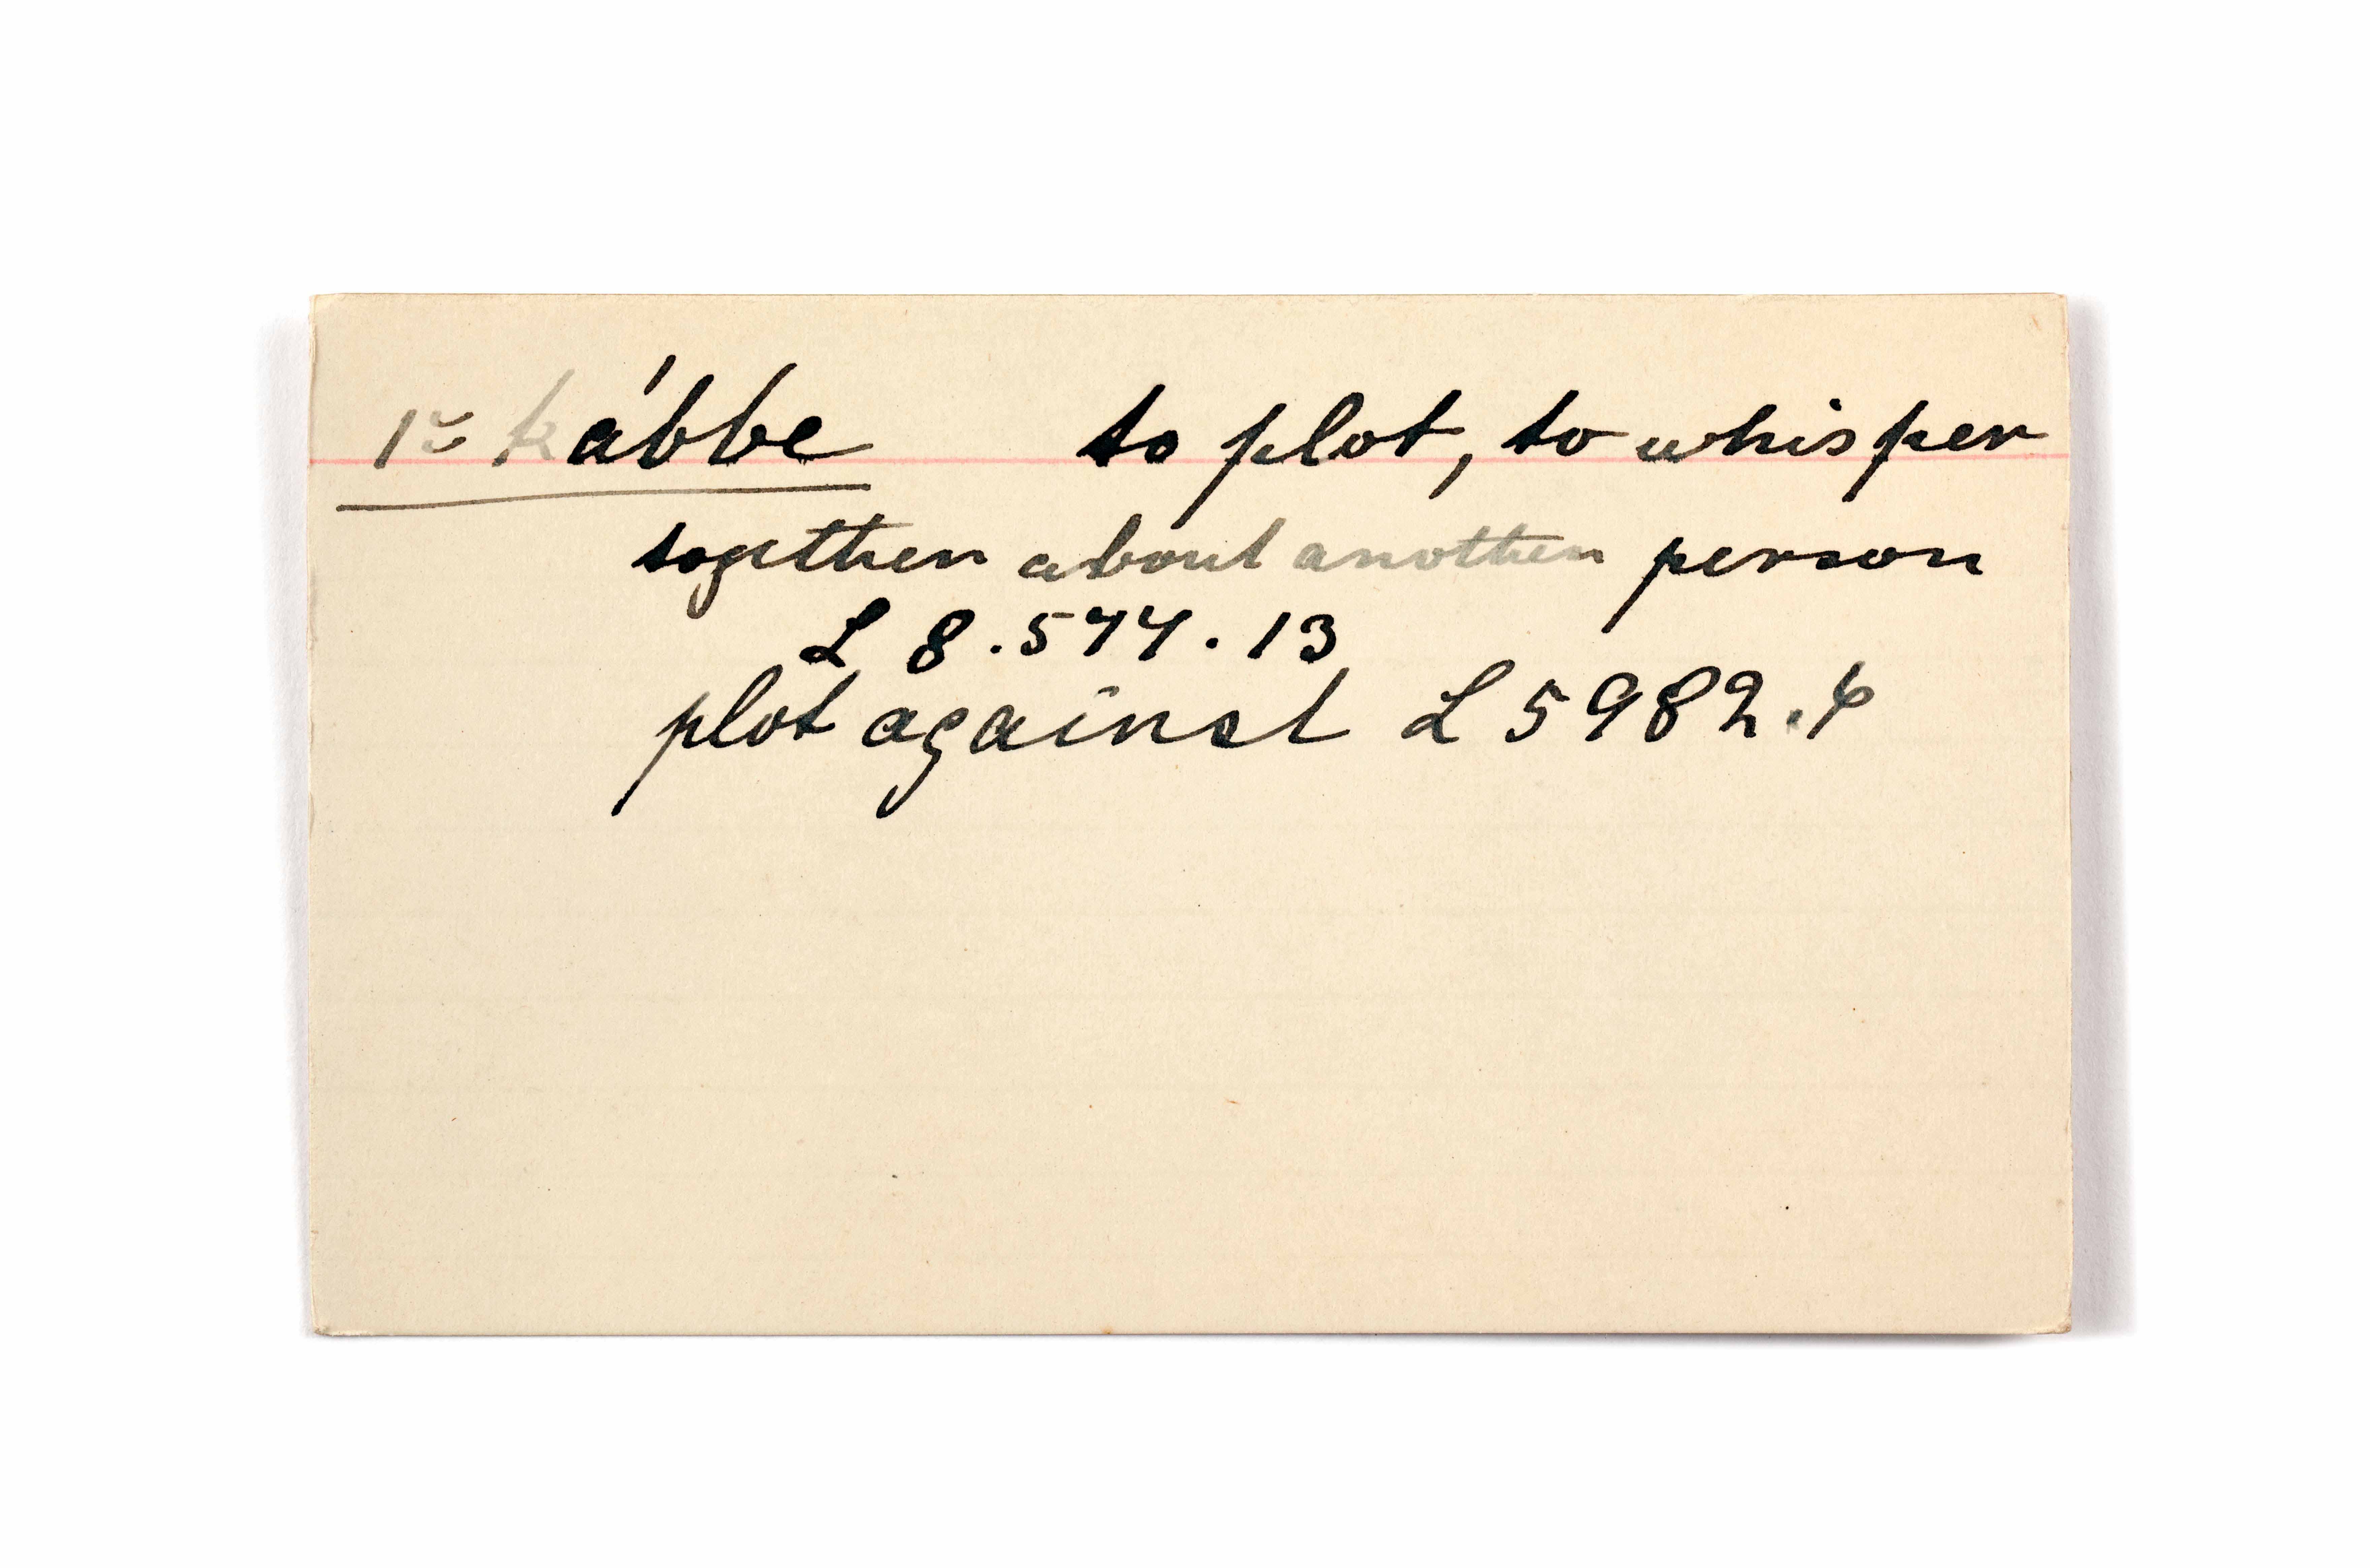 kábbe to plot, to whisper
together about another person
L 8.574.13
plot against L 5982.